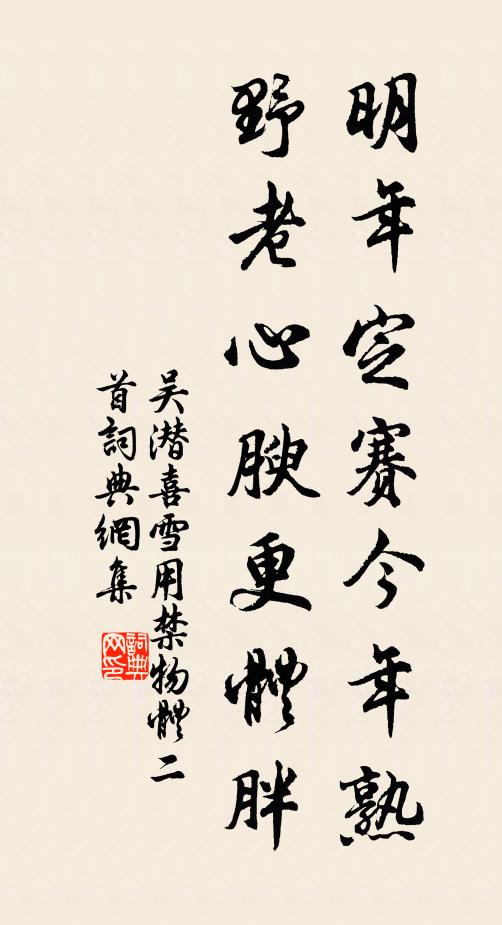 明年定賽今年熟
野老心腴更體胖
吴潜喜雪用禁物體二
首詞典網集
詞典网印